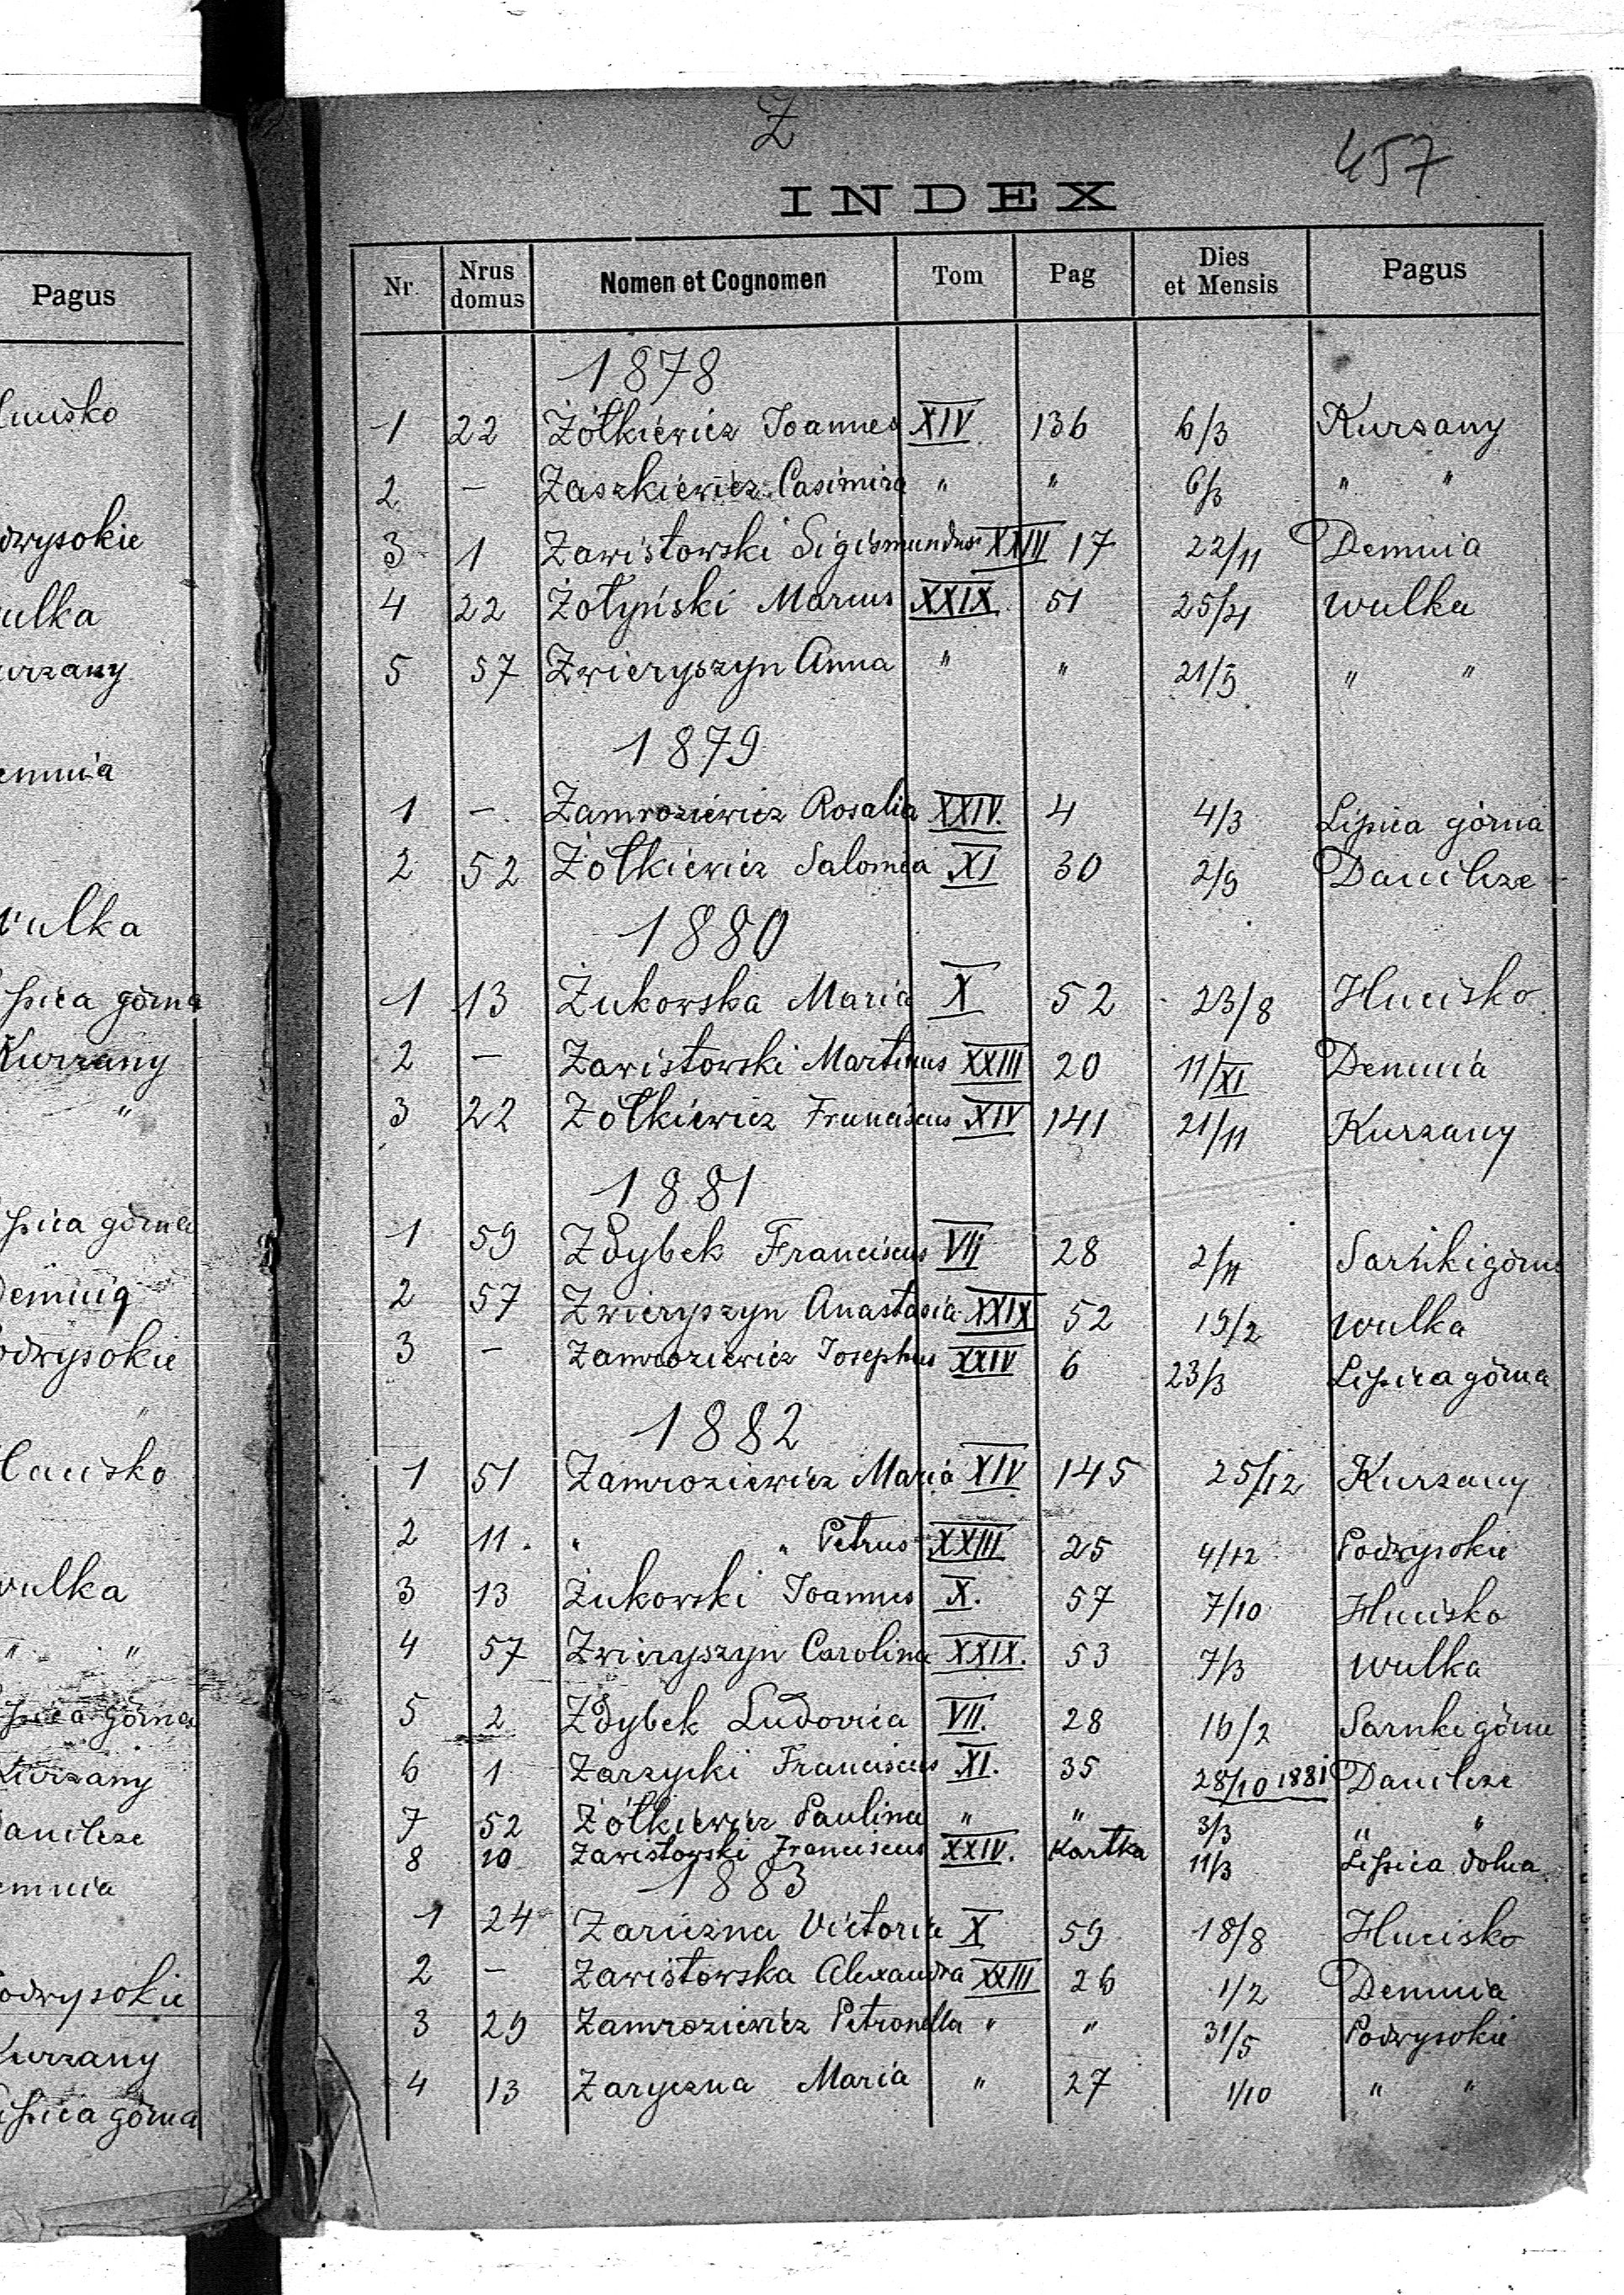 Pagus
dwysokie
ulka
urzany
emnia
Wulka
pica górna
Kurzany
"
pica górna
Demnia
odwysokie
"
wulka
" "
pica górna
Kurzany
Danilcze
emnia
odwysokie
Kurzany
ipica górna
Z
457
INDEX
Nr. Nrus domus Nomen et Cognomen Tom Pag Dies et Mensis Pagus
1878
1 22 Żółkiewicz Joannes XIV 136 6/3 Kurzany
2 — Zaszkiewicz Casimira " " 6/3 " "
3 1 Zawistowski Sigismundus XXIII 17 22/11 Demnia
4 22 Żołyński Marcus XXIX 51 25/4 Wulka
5 57 Zwieryszyn Anna " " 21/5 " "
1879
1 — Zamroziewicz Rosalia XXIV. 4 4/3 Lipica górna
2 52 Żółkiewicz Salomea XI 30 2/9 Danilcze
1880
1 13 Żukowska Maria X 52 23/8 Hucisko
2 — Zawistowski Martinus XXIII 20 11/XI Demnia
3 22 Żółkiewicz Franciscus XIV 141 21/11 Kurzany
1881
1 59 Zdybek Franciscus VII 28 2/4 Sarnki górne
2 57 Zwieryszyn Anastasia XXIX 52 15/2 Wulka
3 — Zamroziewicz Josephus XXIV 6 23/3 Lipica górna
1882
1 51 Zamroziewicz Maria XIV 145 25/12 Kurzany
2 11. " " Petrus XXIII 25 4/12 Podwysokie
3 13 Żukowski Joannes X. 57 7/10 Hucisko
4 57 Zwieryszyn Carolina XXIX. 53 7/3 Wulka
5 2 Zdybek Ludovica VII. 28 16/2 Sarnki górne
6 1 Zarzycki Franciscus XI. 35 28/10 1881 Danilcze
7 52 Żółkiewicz Paulina " " 3/3 " "
8 10 Zawistowski Franciscus XXIV. Kartka 11/3 Lipica dolna
1883
1 24 Zariczna Victoria X 59 18/8 Hucisko
2 — Zawistowska Alexandra XXIII 26 1/2 Demnia
3 29 Zamroziewicz Petronella " " 31/5 Podwysokie
4 13 Zaryczna Maria " 27 1/10 " "